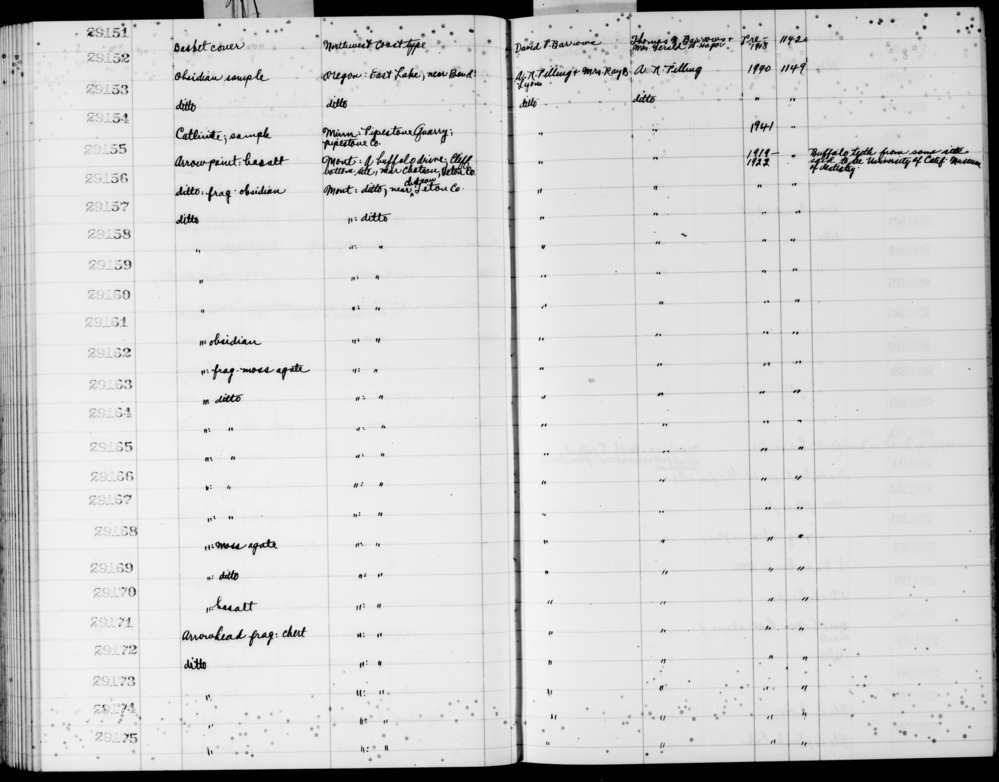 29151 Basket cover Northwest Coast type David P. Barrows Thomas Barrows + Pre- 1142
Mrs. Gerald H. Hagar 1918
29152 Obsidian sample Oregon: East Lake, near Bend A. R. Pilling + Mrs. Ray B. A. R. Pilling 1940 1149
Lyons
29153 ditto ditto ditto ditto " "
29154 Catlinite; sample Minn: Pipestone Quarry; " " 1941 "
Pipestone Co.
29155 Arrow point: basalt Mont: A buffalo drive; Cliff " " 1919- " Buffalo teeth from same site
bottom site, near Choteau, Teton Co. 1922 to the University of Calif. Museum
of dentistry.
29156 ditto: frag. obsidian Mont: ditto; near Choteau Teton Co. " " " "
29157 ditto ": ditto " " " "
29158 " ": " " " " "
29159 " ": " " " " "
29160 " ": " " " " "
29161 ": obsidian ": " " " " "
29162 ": frag. moss agate ": " " " " "
29163 ": ditto ": " " " " "
29164 ": " ": " " " " "
29165 ": " ": " " " " "
29166 ": " ": " " " " "
29167 ": " ": " " " " "
29168 ": moss agate ": " " " " "
29169 ": ditto ": " " " " "
29170 ": basalt ": " " " " "
29171 Arrowhead frag: chert ": " " " " "
29172 ditto ": " " " " "
29173 " ": " " " " "
29174 " ": " " " " "
29175 " ": " " " " "